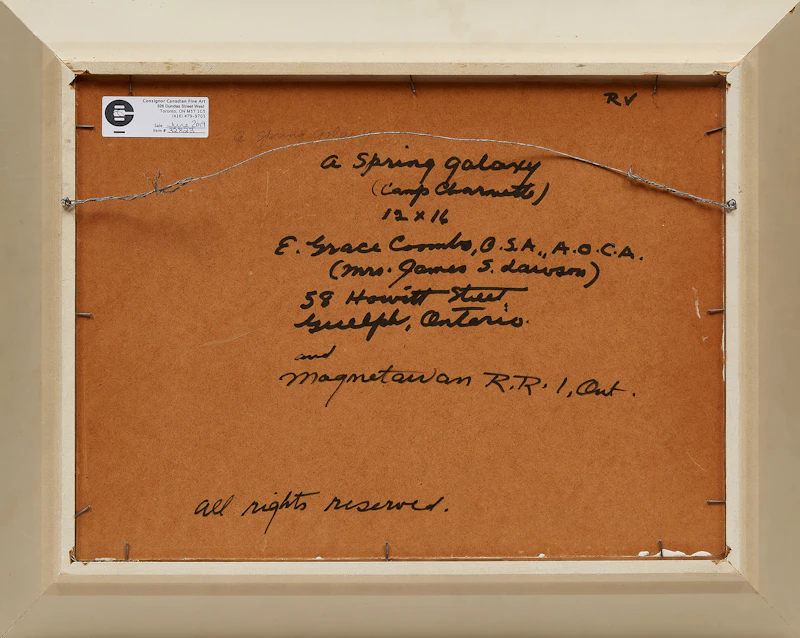 Consignor Canadian Fine Art
326 Dundas Street West
Toronto, ON M5T 1G5
(416) 479-9703
Sale: June 2019
Item #
RV
A Spring Galaxy
(Camp Charmette)
12 x 16
E. Grace Coombs, O.S.A., A.O.C.A.
(Mrs. James S. Lawson)
58 Howitt Street,
Guelph, Ontario.
and
Magnetawan R.R. 1, Ont.
All rights reserved.